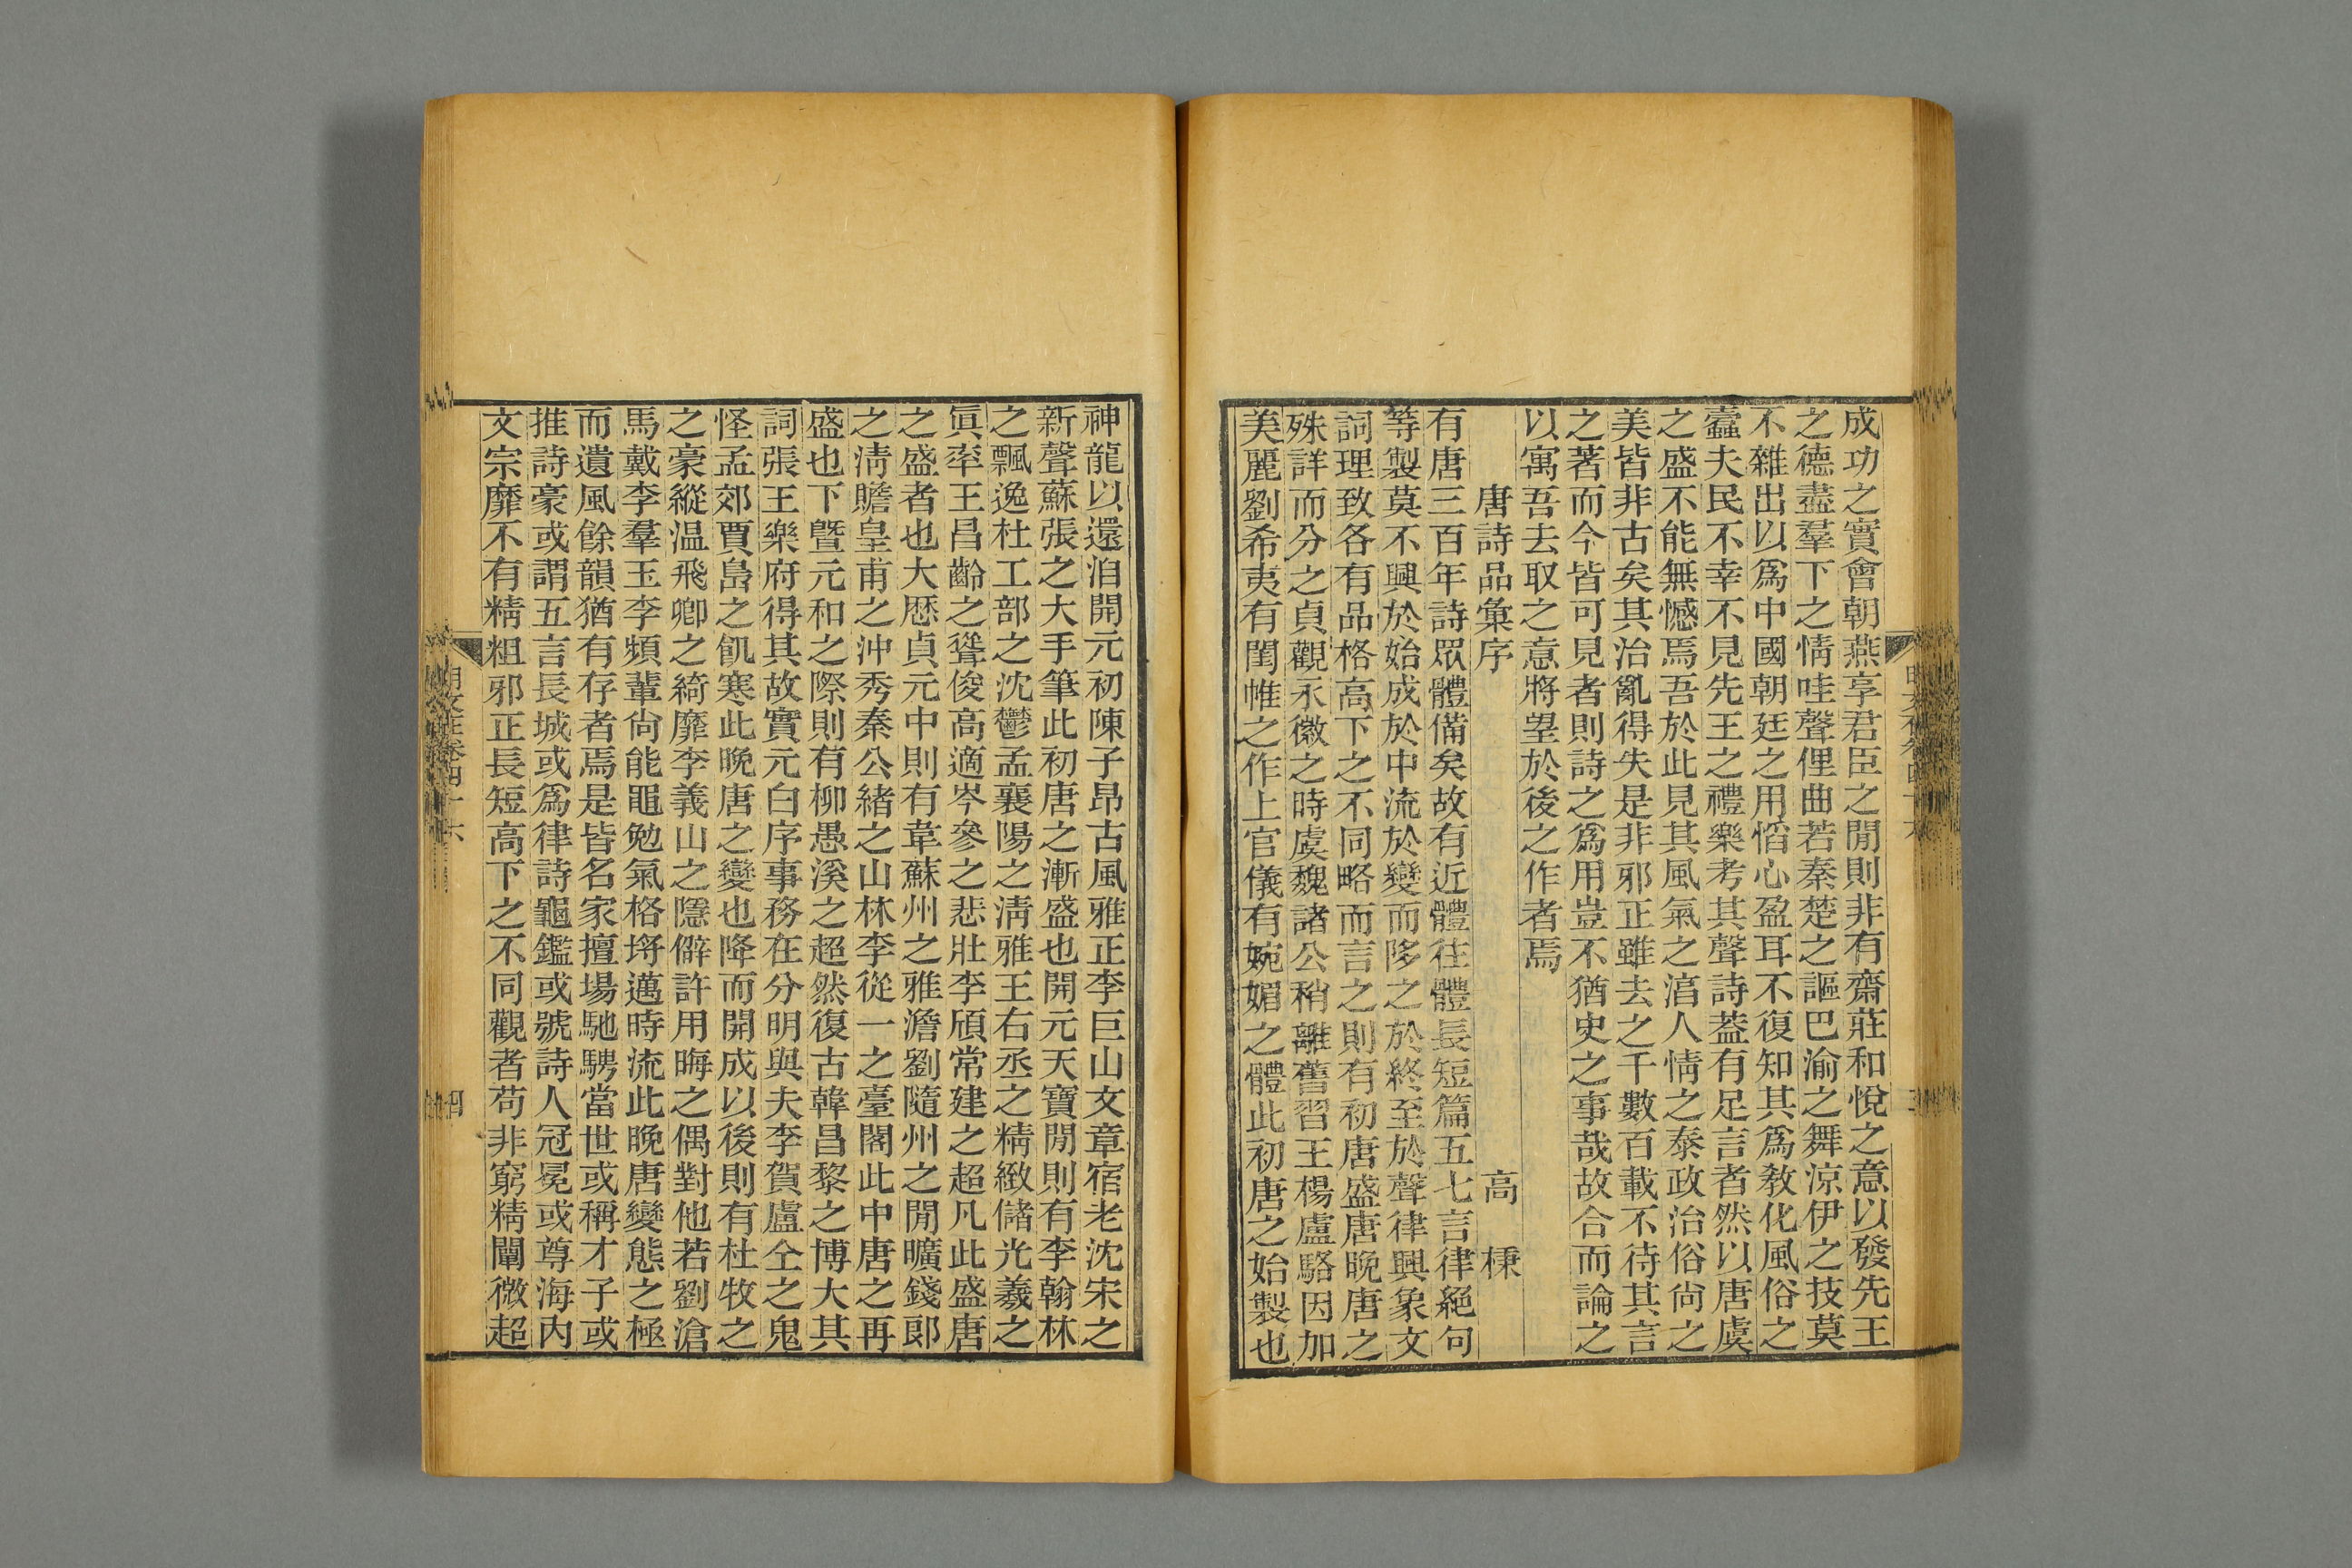 成功之實會朝燕享君臣之閒則非有齋莊和悅之意以發先王
之德盡羣下之情哇聲俚曲若秦楚之謳巴渝之舞涼伊之技莫
不雜出以爲中國朝廷之用慆心盈耳不復知其爲敎化風俗之
蠹夫民不幸不見先王之禮樂考其聲詩葢有足言者然以唐虞
之盛不能無憾焉吾於此見其風氣之湻人情之泰政治俗尙之
美皆非古矣其治亂得失是非邪正雖去之千數百載不待其言
之著而今皆可見者則詩之爲用豈不猶史之事哉故合而論之
以寓吾去取之意將朢於後之作者焉
唐詩品彙序
高 棅
有唐三百年詩眾體備矣故有近體往體長短篇五七言律絕句
等製莫不興於始成於中流於變而陊之於終至於聲律興象文
詞理致各有品格高下之不同略而言之則有初唐盛唐晚唐之
殊詳而分之貞觀永徽之時虞魏諸公稍離舊習王楊盧駱因加
美麗劉希夷有閨帷之作上官儀有婉媚之體此初唐之始製也
神龍以還洎開元初陳子昂古風雅正李巨山文章宿老沈宋之
新聲蘇張之大手筆此初唐之漸盛也開元天寶閒則有李翰林
之飄逸杜工部之沈鬱孟襄陽之淸雅王右丞之精緻儲光羲之
眞率王昌齡之聳俊高適岑參之悲壯李頎常建之超凡此盛唐
之盛者也大厯貞元中則有韋蘇州之雅澹劉隨州之閒曠錢郎
之淸贍皇甫之沖秀秦公緒之山林李從一之臺閣此中唐之再
盛也下曁元和之際則有柳愚溪之超然復古韓昌黎之博大其
詞張王樂府得其故實元白序事務在分明與夫李賀盧仝之鬼
怪孟郊賈島之飢寒此晚唐之變也降而開成以後則有杜牧之
之豪縱温飛卿之綺靡李義山之隱僻許用晦之偶對他若劉滄
馬戴李羣玉李頻輩尙能黽勉氣格埒邁時流此晚唐變態之極
而遺風餘韻猶有存者焉是皆名家擅場馳騁當世或稱才子或
推詩豪或謂五言長城或爲律詩龜鑑或號詩人冠冕或尊海內
文宗靡不有精粗邪正長短高下之不同觀者苟非窮精闡微超